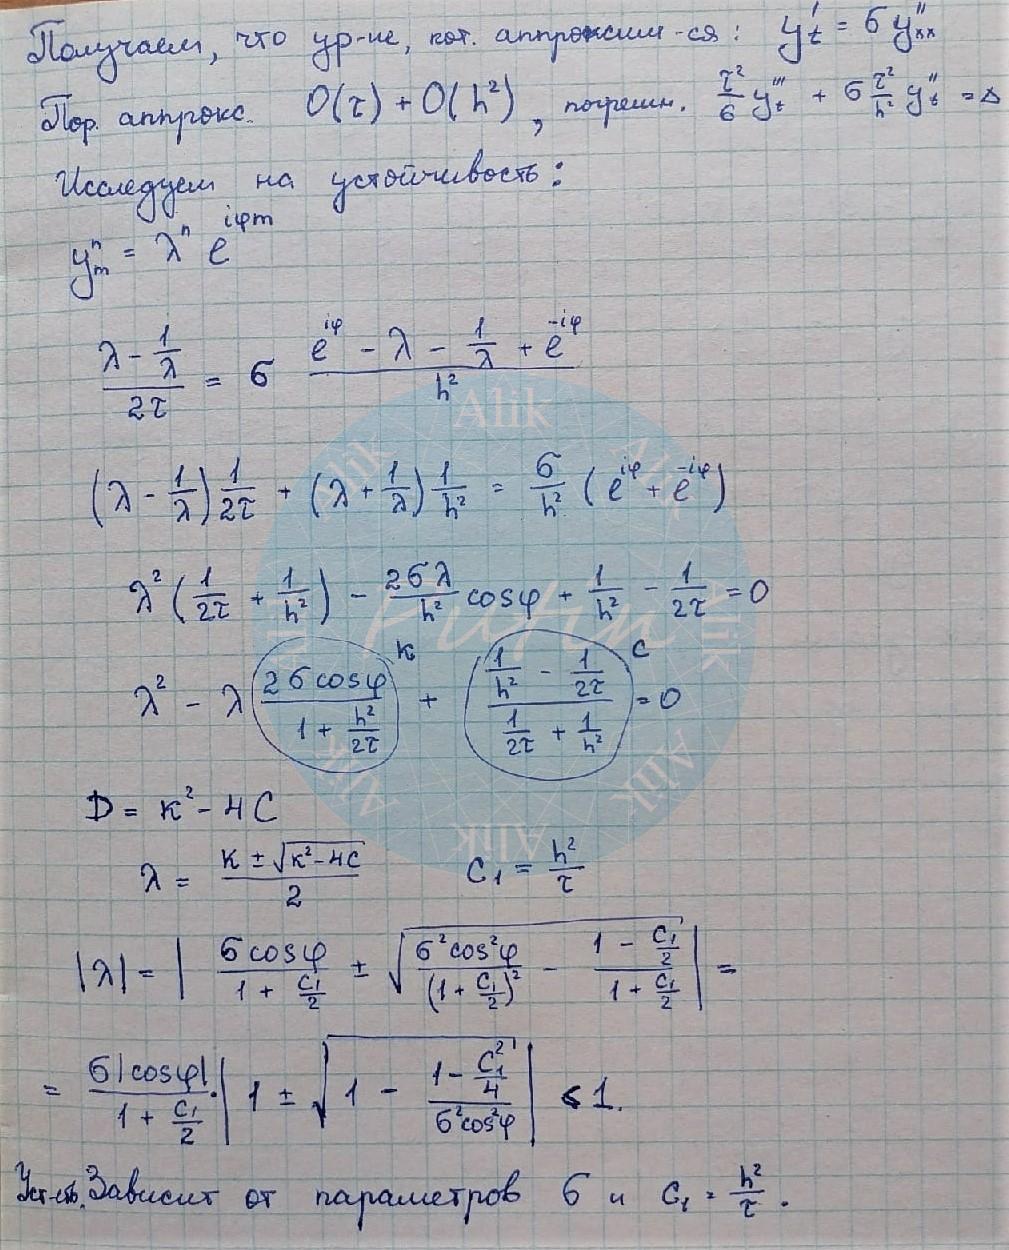 Получаем, что ур-ие, кот. аппроксим-ся: y'_t = σ y''_xx
Пор. аппрокс. O(τ) + O(h²), погрешн. τ²/6 y'''_t + σ τ²/h² y''_t = Δ
Исследуем на устойчивость:
y^n_m = λ^n e^{iφm}
(λ - 1/λ)/(2τ) = σ (e^{iφ} - λ - 1/λ + e^{-iφ})/h²
(λ - 1/λ) 1/(2τ) + (λ + 1/λ) 1/h² = σ/h² (e^{iφ} + e^{-iφ})
λ² (1/(2τ) + 1/h²) - (2σλ/h²) cosφ + 1/h² - 1/(2τ) = 0
λ² - λ (2σcosφ)/(1 + h²/(2τ)) K + (1/h² - 1/(2τ))/(1/(2τ) + 1/h²) C = 0
D = K² - 4C
λ = (K ± √(K² - 4C))/2 C₁ = h²/τ
|λ| = | σcosφ/(1 + C₁/2) ± √(σ²cos²φ/(1 + C₁/2)² - (1 - C₁/2)/(1 + C₁/2)) | =
= σ|cosφ|/(1 + C₁/2) · | 1 ± √(1 - (1 - C₁²/4)/(σ²cos²φ)) | ≤ 1.
Уст-сть. Зависит от параметров σ и C₁ = h²/τ.
Alik
Alik
Alik
Alik
Alik
Alik
Alik
Alik
Putin